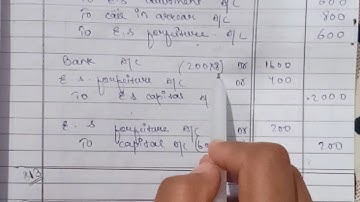 To E.S allotment A/C 800
To call in arrear A/C 800
To E.S forfeiture A/C 600
Bank A/C (200×8) Dr 1600
E.S. forfeiture A/C Dr 400
To E.S capital A/ 2000
E.S forfeiture A/C Dr 200
To capital A/C 200